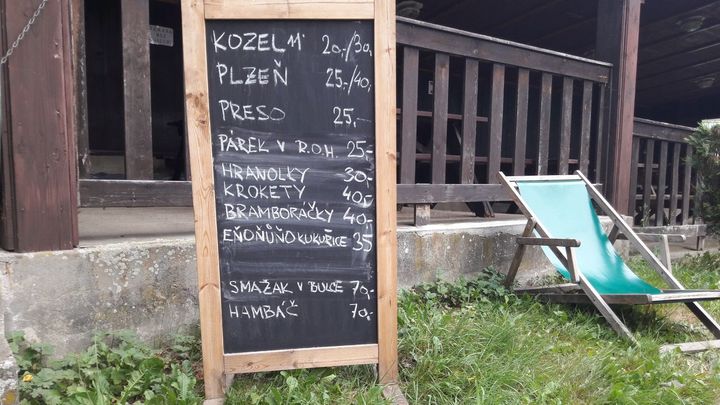 KOZEL 11° 20,-/30,-
PLZEŇ 25,-/40,-
PRESO 25,-
PÁREK V R.O.H. 25,-
HRANOLKY 30,-
KROKETY 40,-
BRAMBORÁČKY 40,-
EŇOŇŮŇO KUKUŘICE 35
SMAŽAK V BULCE 70,-
HAMBÁČ 70,-